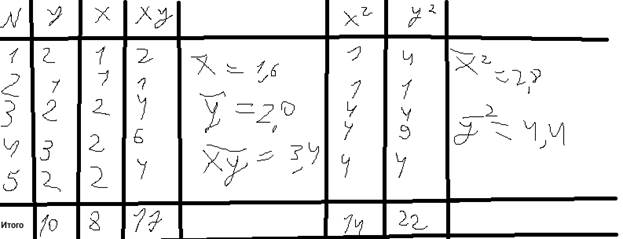 N y x xy x² y²
1 2 1 2 1 4
2 1 1 1 x̄ = 1,6 1 1 x̄² = 2,8
3 2 2 4 ȳ = 2,0 4 4 ȳ² = 4,4
4 3 2 6 x̄ȳ = 3,4 4 9
5 2 2 4 4 4
Итого 10 8 17 14 22